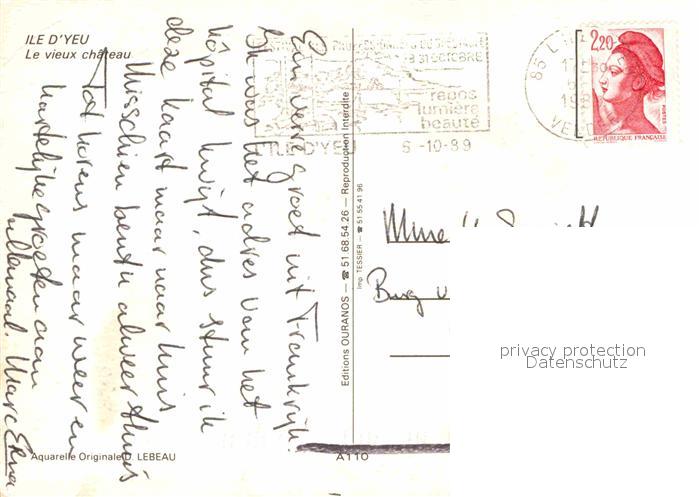 ILE D'YEU
Le vieux château
Een verre groet uit Frankrijk.
Ik was het adres van het
hôpital kwijt, dus stuur ik
deze kaart maar naar huis
Misschien bent u alweer thuis
Tot horens maar weer en
hartelijke groeten aan
allemaal. Marc Elena
Aquarelle Originale D. LEBEAU
A110
Editions OURANOS — ☎ 51.68.54.26 — Reproduction Interdite
Imp. TESSIER — ☎ 51 55 41 96
31 OCTOBRE
repos
lumière
beauté
ILE D'YEU
6 -10-89
85 L'
VENDEE
2,20
POSTES
REPUBLIQUE FRANÇAISE
Mme
Burg
privacy protection
Datenschutz